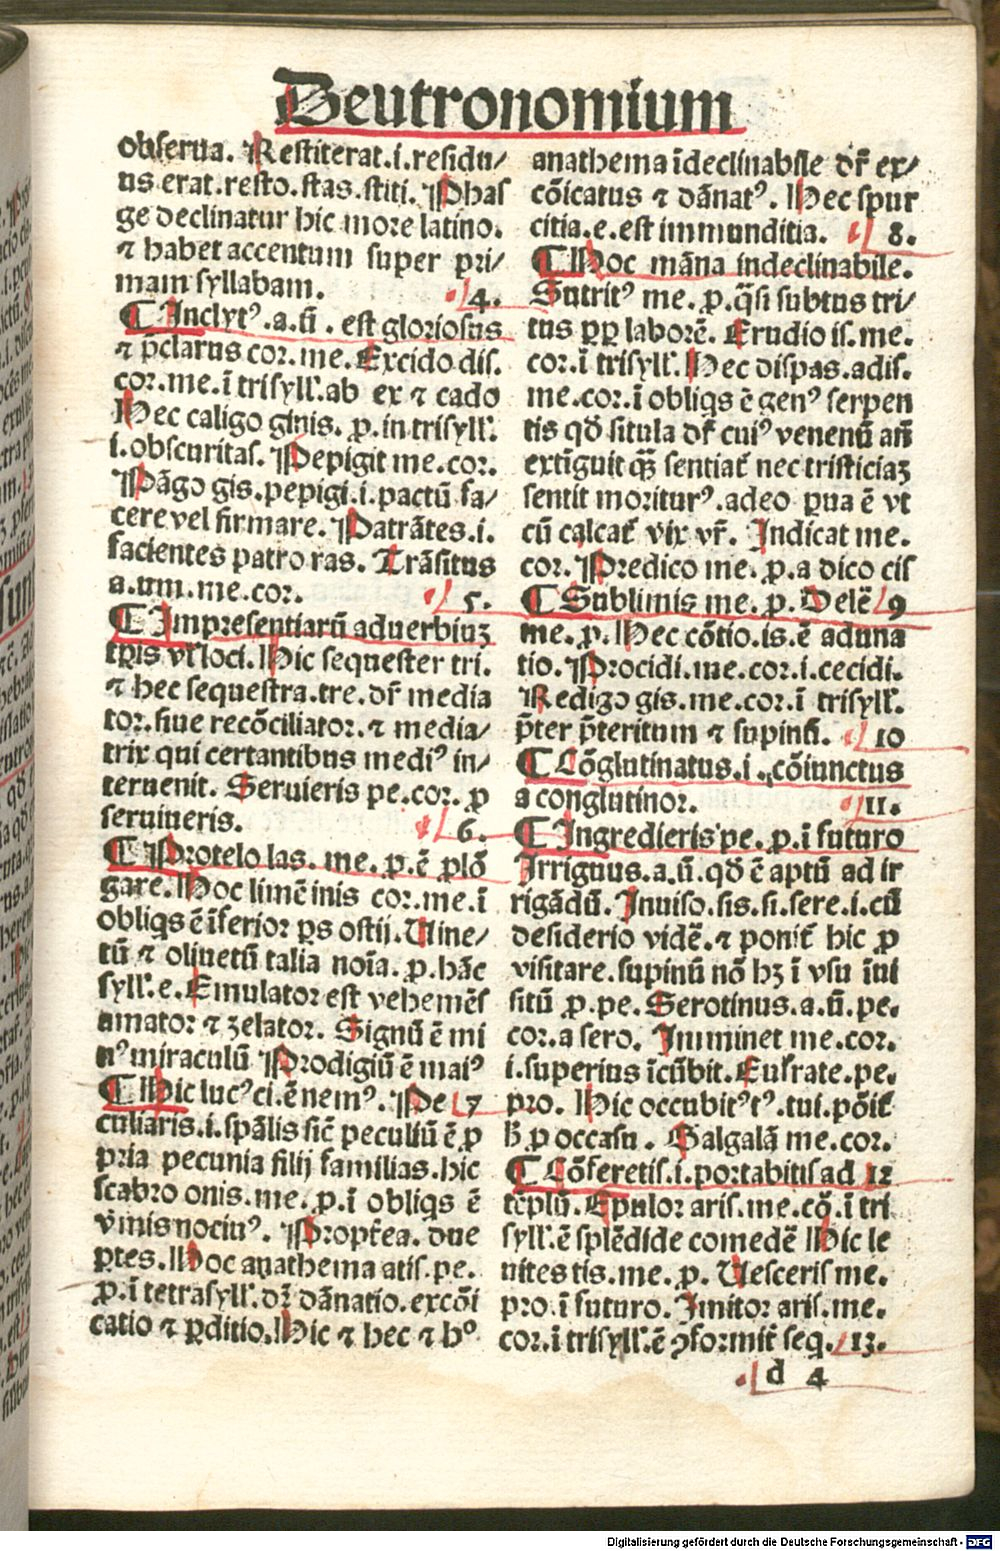 Deutronomium
obserua. Restiterat.i.residu/
us erat.resto.stas.stiti. Phas
ge declinatur hic more latino.
⁊ habet accentum super pri/
mam syllabam. .4.
¶ Inclytꝰ.a.ū. est gloriosus
⁊ p̄clarus cor. me. Excido dis.
cor. me. ī trisyll'. ab ex ⁊ cado
Hec caligo ginis. p. in trisyll'.
i. obscuritas. Pepigit me. cor.
Pāgo gis. pepigi. i. pactū fa/
cere vel firmare. Patrātes. i.
facientes patro ras. Trāsitus
a. um. me. cor. 5.
¶ Impresentiarū aduerbiuꝫ
tꝑis vl' loci. Hic sequester tri.
⁊ hec sequestra. tre. dr̄ media
tor. siue recōciliator. ⁊ media/
trix qui certantibus mediꝰ in/
teruenit. Seruieris pe. cor. ꝓ
seruiueris. 6.
¶ Protelo las. me. p. ē plō
gare. Hoc limē inis cor. me. ī
obliqs ē īferior ꝑs ostij. Uine/
tū ⁊ oliuetū talia noīa. p. hāc
syll'. e. Emulator est vehemēs
amator ⁊ zelator. Signū ē mi
nꝰ miraculū Prodigiū ē maiꝰ
¶ Hic lucꝰ ci. ē nemꝰ. Pe 7
culiaris. i. spālis sic̄ peculiū ē ꝓ
pria pecunia filij familias. hic
scabro onis. me. p. ī obliqs ē
v̄mis nociuꝰ. Propt̄ea. due
ꝑtes. Hoc anathema atis. pe.
p. ī tetrasyll'. dꝛ̄ dānatio. excōi
catio ⁊ ꝑditio. Hic ⁊ hec ⁊ hº
anathema īdeclinabile dr̄ ex/
cōicatus ⁊ dānatꝰ. Hec spur
citia. e. est immunditia. 8.
¶ Hoc māna indeclinabile.
Sutritꝰ me. p. q̄si subtus tri/
tus ꝓꝑ laborē. Erudio is. me.
cor. ī trisyll'. Hec dispas. adis.
me. cor. ī obliqs ē genꝰ serpen
tis qđ situla dr̄ cuiꝰ venenū an̄
extīguit qꝫ̄ sentiat̄ nec tristiciaꝫ
sentit moriturꝰ. adeo ꝑua ē vt
cū calcat̄ vix vr̄. Indicat me.
cor. Predico me. p. a dico cis
¶ Sublimis me. p. Delē 9
me. p. Hec cōtio. is. ē aduna
tio. Procidi. me. cor. i. cecidi.
Redigo gis. me. cor. ī trisyll'.
p̄ter p̄teritum ⁊ supinū. 10
¶ Cōglutinatus. i. cōiunctus
a conglutinor. 11.
¶ Ingredieris pe. p. ī futuro
Irriguus. a. ū. qđ ē aptū ad ir
rigādū. Inuiso. sis. si. sere. i. cū
desiderio vidē. ⁊ ponit̄ hic ꝓ
visitare. supinū nō hꝫ ī vsu īui
sitū ꝓ. pe. Serotinus. a. ū. pe.
cor. a sero. Imminet me. cor.
i. superius īcūbit. Eufrate. pe.
pro. Hic occubitꝰ tꝰ. tui. pōit̄
ħ ꝓ occasu. Galgalā me. cor.
¶ Cōferetis. i. portabitis ad 12
tēplū. Epulor aris. me. co. ī tri
syll'. ē splēdide comedē Hic le
nites tis. me. p. Uesceris me.
pro. ī futuro. Imitor aris. me.
cor. ī trisyll'. ē ꝯformit̄ seq. 13.
d 4
Digitalisierung gefördert durch die Deutsche Forschungsgemeinschaft - DFG